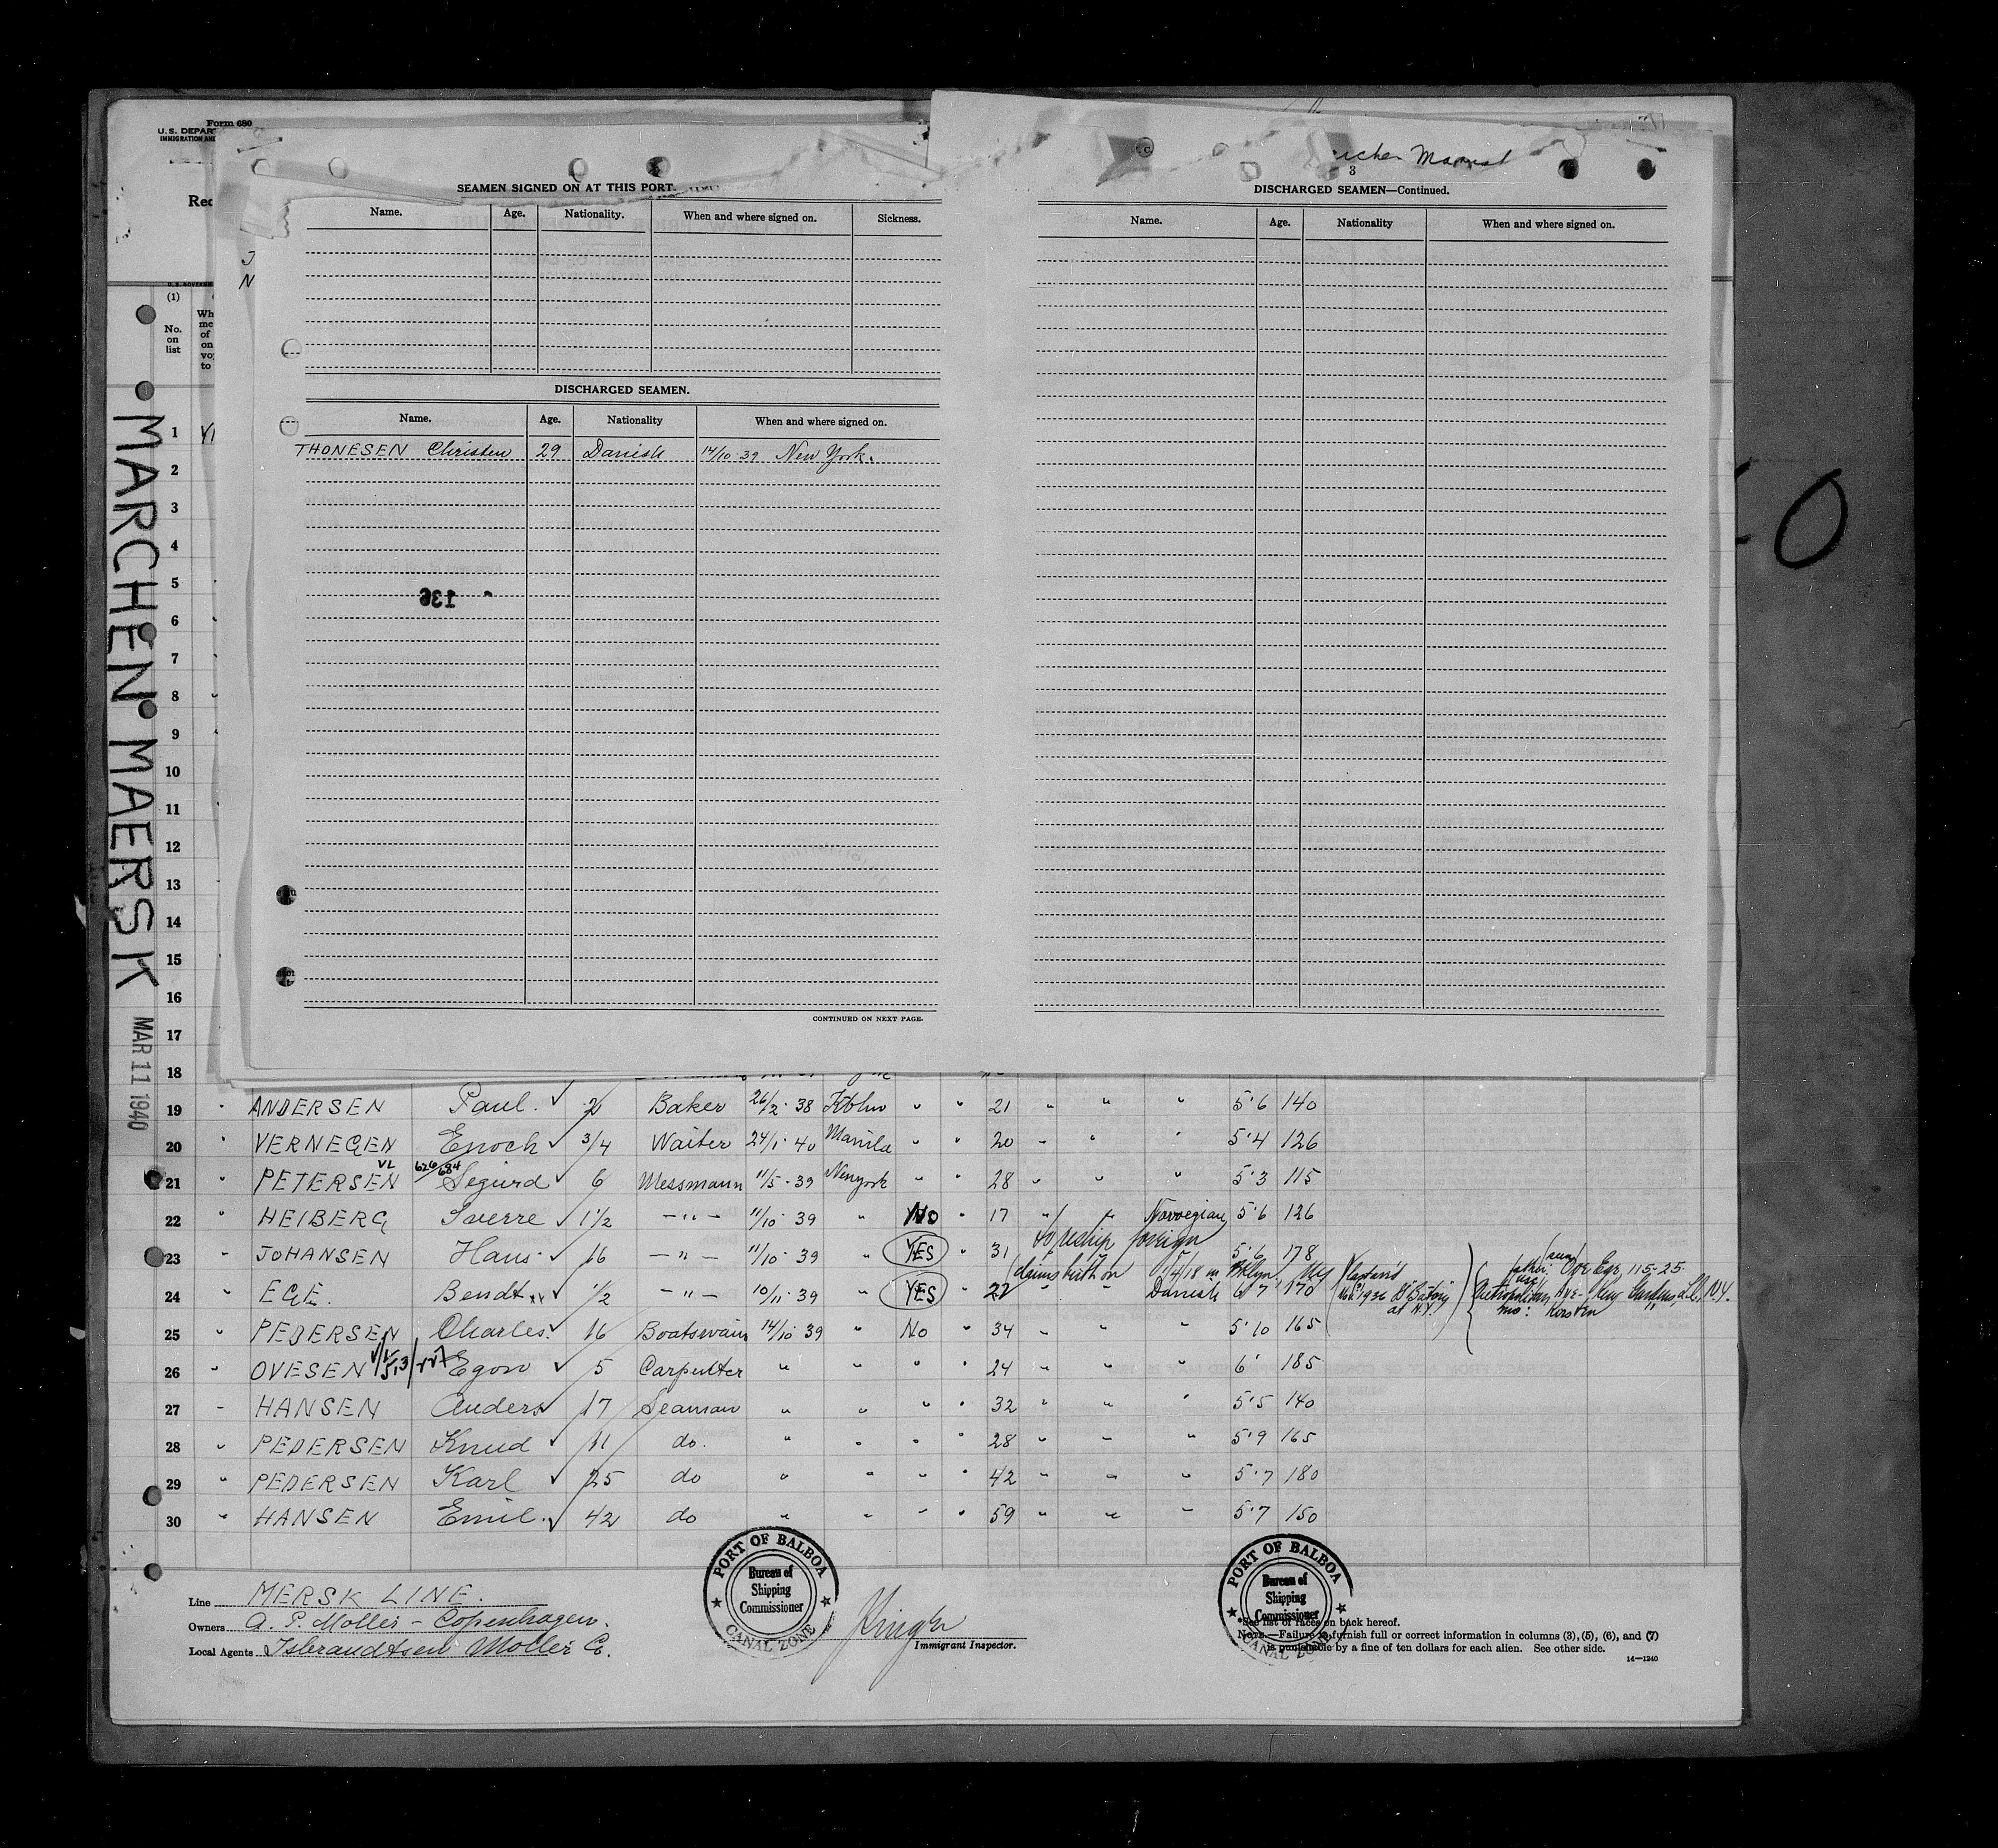 Form 680
U. S. DEPAR
IMMIGRATION AND
Rec
MARCHEN MAERSK
MAR 11 1940
(1)
No.
on
list
SEAMEN SIGNED ON AT THIS PORT.
Name. Age. Nationality. When and where signed on. Sickness.
DISCHARGED SEAMEN.
Name. Age. Nationality When and where signed on.
THONESEN Christen 29 Danish 14/10 39 New York.
136
CONTINUED ON NEXT PAGE.
3
DISCHARGED SEAMEN—Continued.
Name. Age. Nationality When and where signed on.
1
2
3
4
5
6
7
8
9
10
11
12
13
14
15
16
17
18
19 " ANDERSEN Paul. 2 Baker 26/2 · 38 Kbhn " " 21 " " " 5'6 140
20 " VERNEGEN Enoch 3/4 Waiter 24/1 · 40 Manila " " 20 " " " 5'4 126
21 " PETERSEN Sigurd 6 Messmann 11/5 - 39 Newyork " " 28 " " " 5'3 115
22 " HEIBERG Sverre 1 1/2 — " — 11/10 · 39 " No " 17 " " Norvegian 5'6 126
to reship foreign
23 " JOHANSEN Hans 16 — " — 11/10 · 39 " YES " 31 5'6 178
claims birth on 5/4/18 in Bklyn. NY
24 " EGE. Bendt 1/2 — " — 10/11 · 39 " YES " 22 " " Danish 6'7 170
father: Ove Ege, 115-25
Metropolitan Ave - Kew Gardens, L.I., NY.
25 " PEDERSEN Charles. 16 Boatswain 14/10 39 " No " 34 " " " 5'10 165
26 " OVESEN Egon 5 Carpenter " " " " 24 " " " 6' 185
27 " HANSEN Anders 17 Seaman " " " " 32 " " " 5'5 140
28 " PEDERSEN Knud 11 do. " " " " 28 " " " 5'9 165
29 " PEDERSEN Karl 25 do " " " " 42 " " " 5'7 180
30 " HANSEN Emil. 42 do " " " " 59 " " " 5'7 150
Line MERSK LINE.
Owners A. P. Moller - Copenhagen.
Local Agents Isbrandtsen Moller C.
PORT OF BALBOA
Bureau of
Shipping
Commissioner
CANAL ZONE
Immigrant Inspector.
PORT OF BALBOA
Bureau of
Shipping
Commissioner
CANAL ZONE
*See list of races on back hereof.
NOTE.—Failure to furnish full or correct information in columns (3), (5), (6), and (7)
is punishable by a fine of ten dollars for each alien. See other side.
14—1240